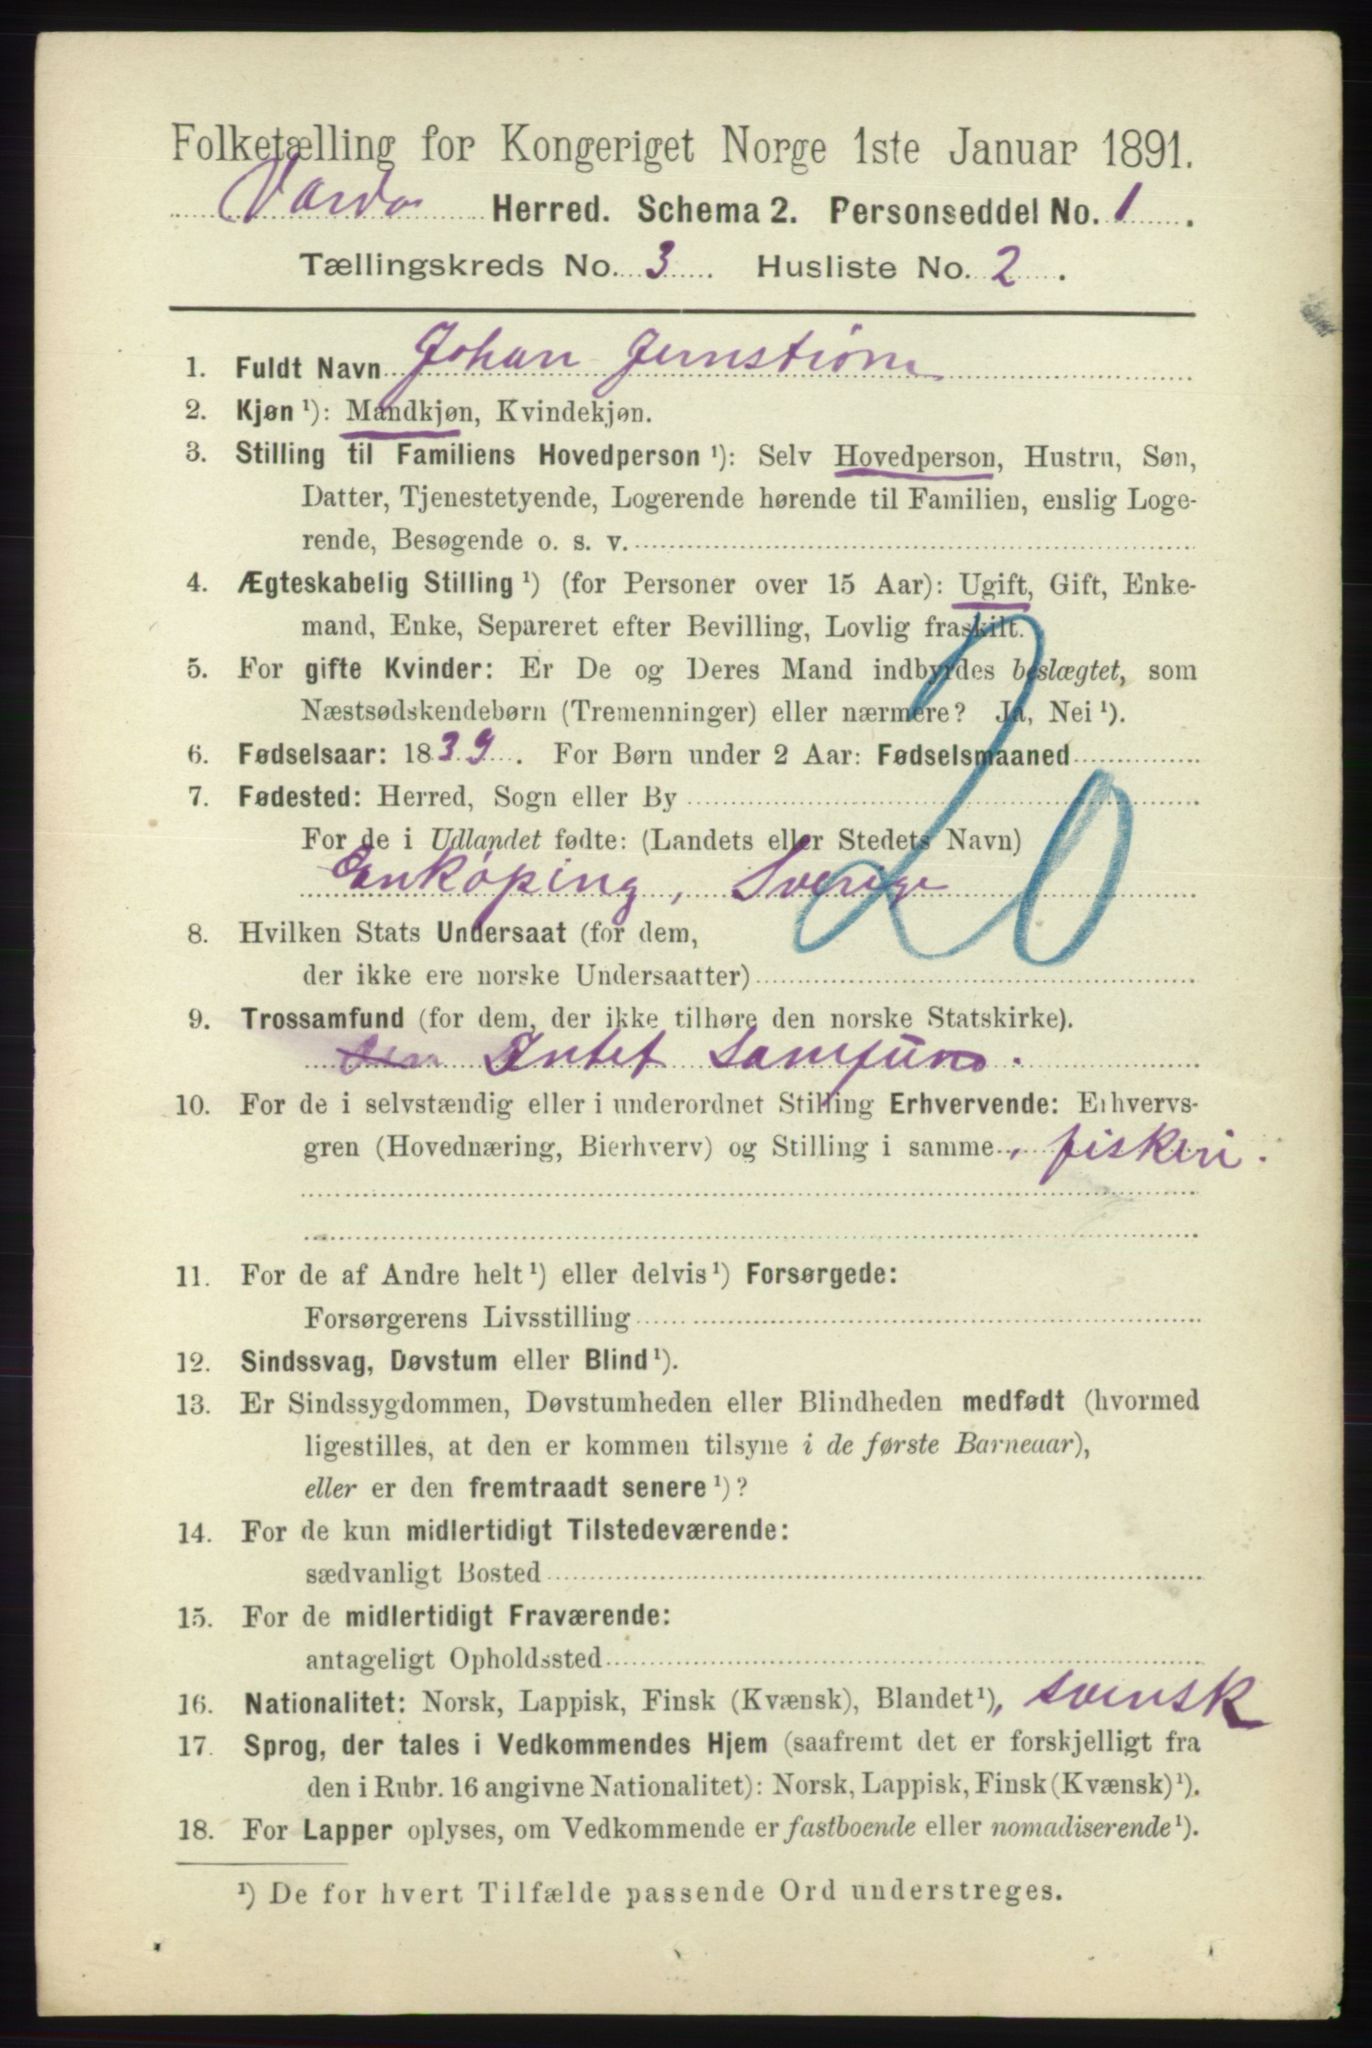 Folketælling for Kongeriget Norge 1ste Januar 1891.
Vardø Herred. Schema 2. Personseddel No. 1.
Tællingskreds No. 3. Husliste No. 2.
1. Fuldt Navn Johan Jernstrøm
2. Kjøn ¹): Mandkjøn, Kvindekjøn.
3. Stilling til Familiens Hovedperson ¹): Selv Hovedperson, Hustru, Søn,
Datter, Tjenestetyende, Logerende hørende til Familien, enslig Loge-
rende, Besøgende o. s. v.
4. Ægteskabelig Stilling ¹) (for Personer over 15 Aar): Ugift, Gift, Enke-
mand, Enke, Separeret efter Bevilling, Lovlig fraskilt.
5. For gifte Kvinder: Er De og Deres Mand indbyrdes beslægtet, som
Næstsødskendebørn (Tremenninger) eller nærmere? Ja, Nei ¹).
6. Fødselsaar: 1839. For Børn under 2 Aar: Fødselsmaaned
7. Fødested: Herred, Sogn eller By
For de i Udlandet fødte: (Landets eller Stedets Navn)
Enköping, Sverige
20
8. Hvilken Stats Undersaat (for dem,
der ikke ere norske Undersaatter)
9. Trossamfund (for dem, der ikke tilhøre den norske Statskirke).
den Intet Samfund.
10. For de i selvstændig eller i underordnet Stilling Erhvervende: Erhvervs-
gren (Hovednæring, Bierhverv) og Stilling i samme, fiskeri.
11. For de af Andre helt ¹) eller delvis ¹) Forsørgede:
Forsørgerens Livsstilling
12. Sindssvag, Døvstum eller Blind ¹).
13. Er Sindssygdommen, Døvstumheden eller Blindheden medfødt (hvormed
ligestilles, at den er kommen tilsyne i de første Barneaar),
eller er den fremtraadt senere ¹)?
14. For de kun midlertidigt Tilstedeværende:
sædvanligt Bosted
15. For de midlertidigt Fraværende:
antageligt Opholdssted
16. Nationalitet: Norsk, Lappisk, Finsk (Kvænsk), Blandet ¹), svensk
17. Sprog, der tales i Vedkommendes Hjem (saafremt det er forskjelligt fra
den i Rubr. 16 angivne Nationalitet): Norsk, Lappisk, Finsk (Kvænsk) ¹).
18. For Lapper oplyses, om Vedkommende er fastboende eller nomadiserende ¹).
¹) De for hvert Tilfælde passende Ord understreges.